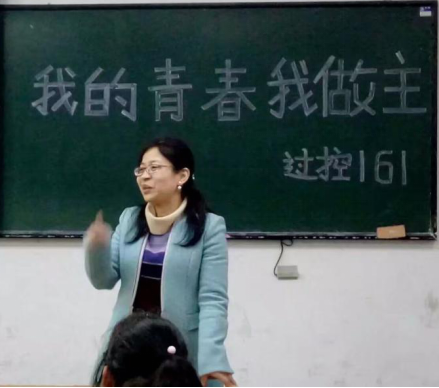 我的青春我做主
过控161